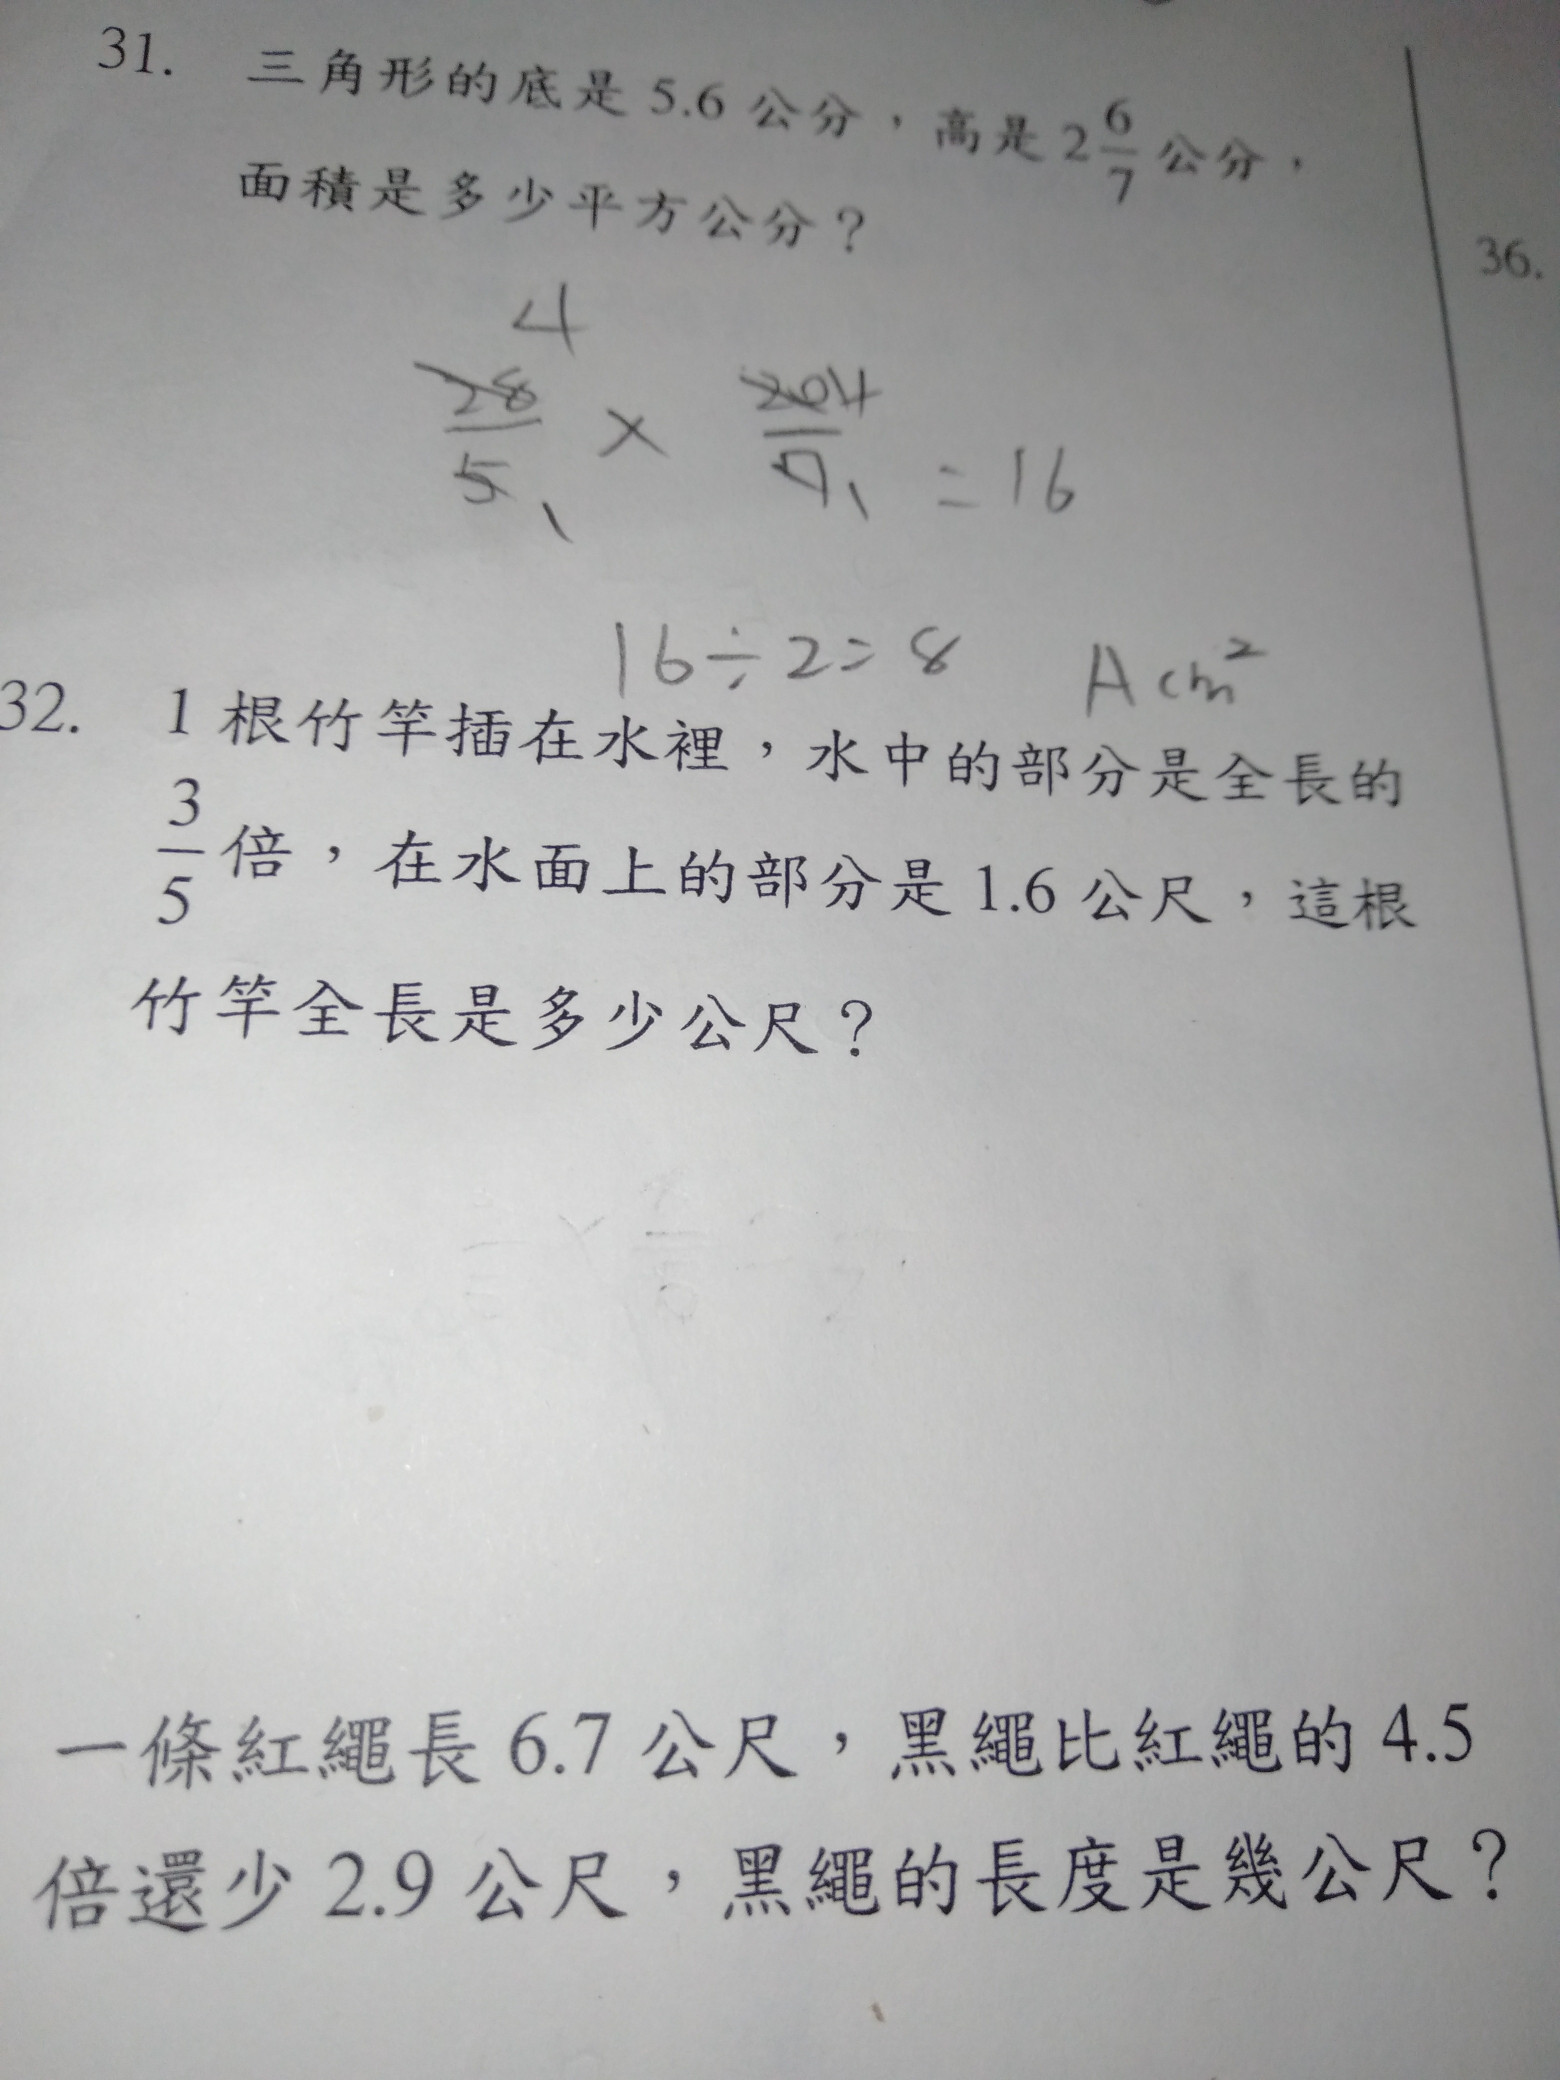 31. 三角形的底是 5.6 公分，高是 2 6/7 公分，
面積是多少平方公分？
4
28/5 1 × 20 4/7 1 = 16
16÷2=8 A cm²
32. 1 根竹竿插在水裡，水中的部分是全長的
3/5 倍，在水面上的部分是 1.6 公尺，這根
竹竿全長是多少公尺？
一條紅繩長 6.7 公尺，黑繩比紅繩的 4.5
倍還少 2.9 公尺，黑繩的長度是幾公尺？
36.